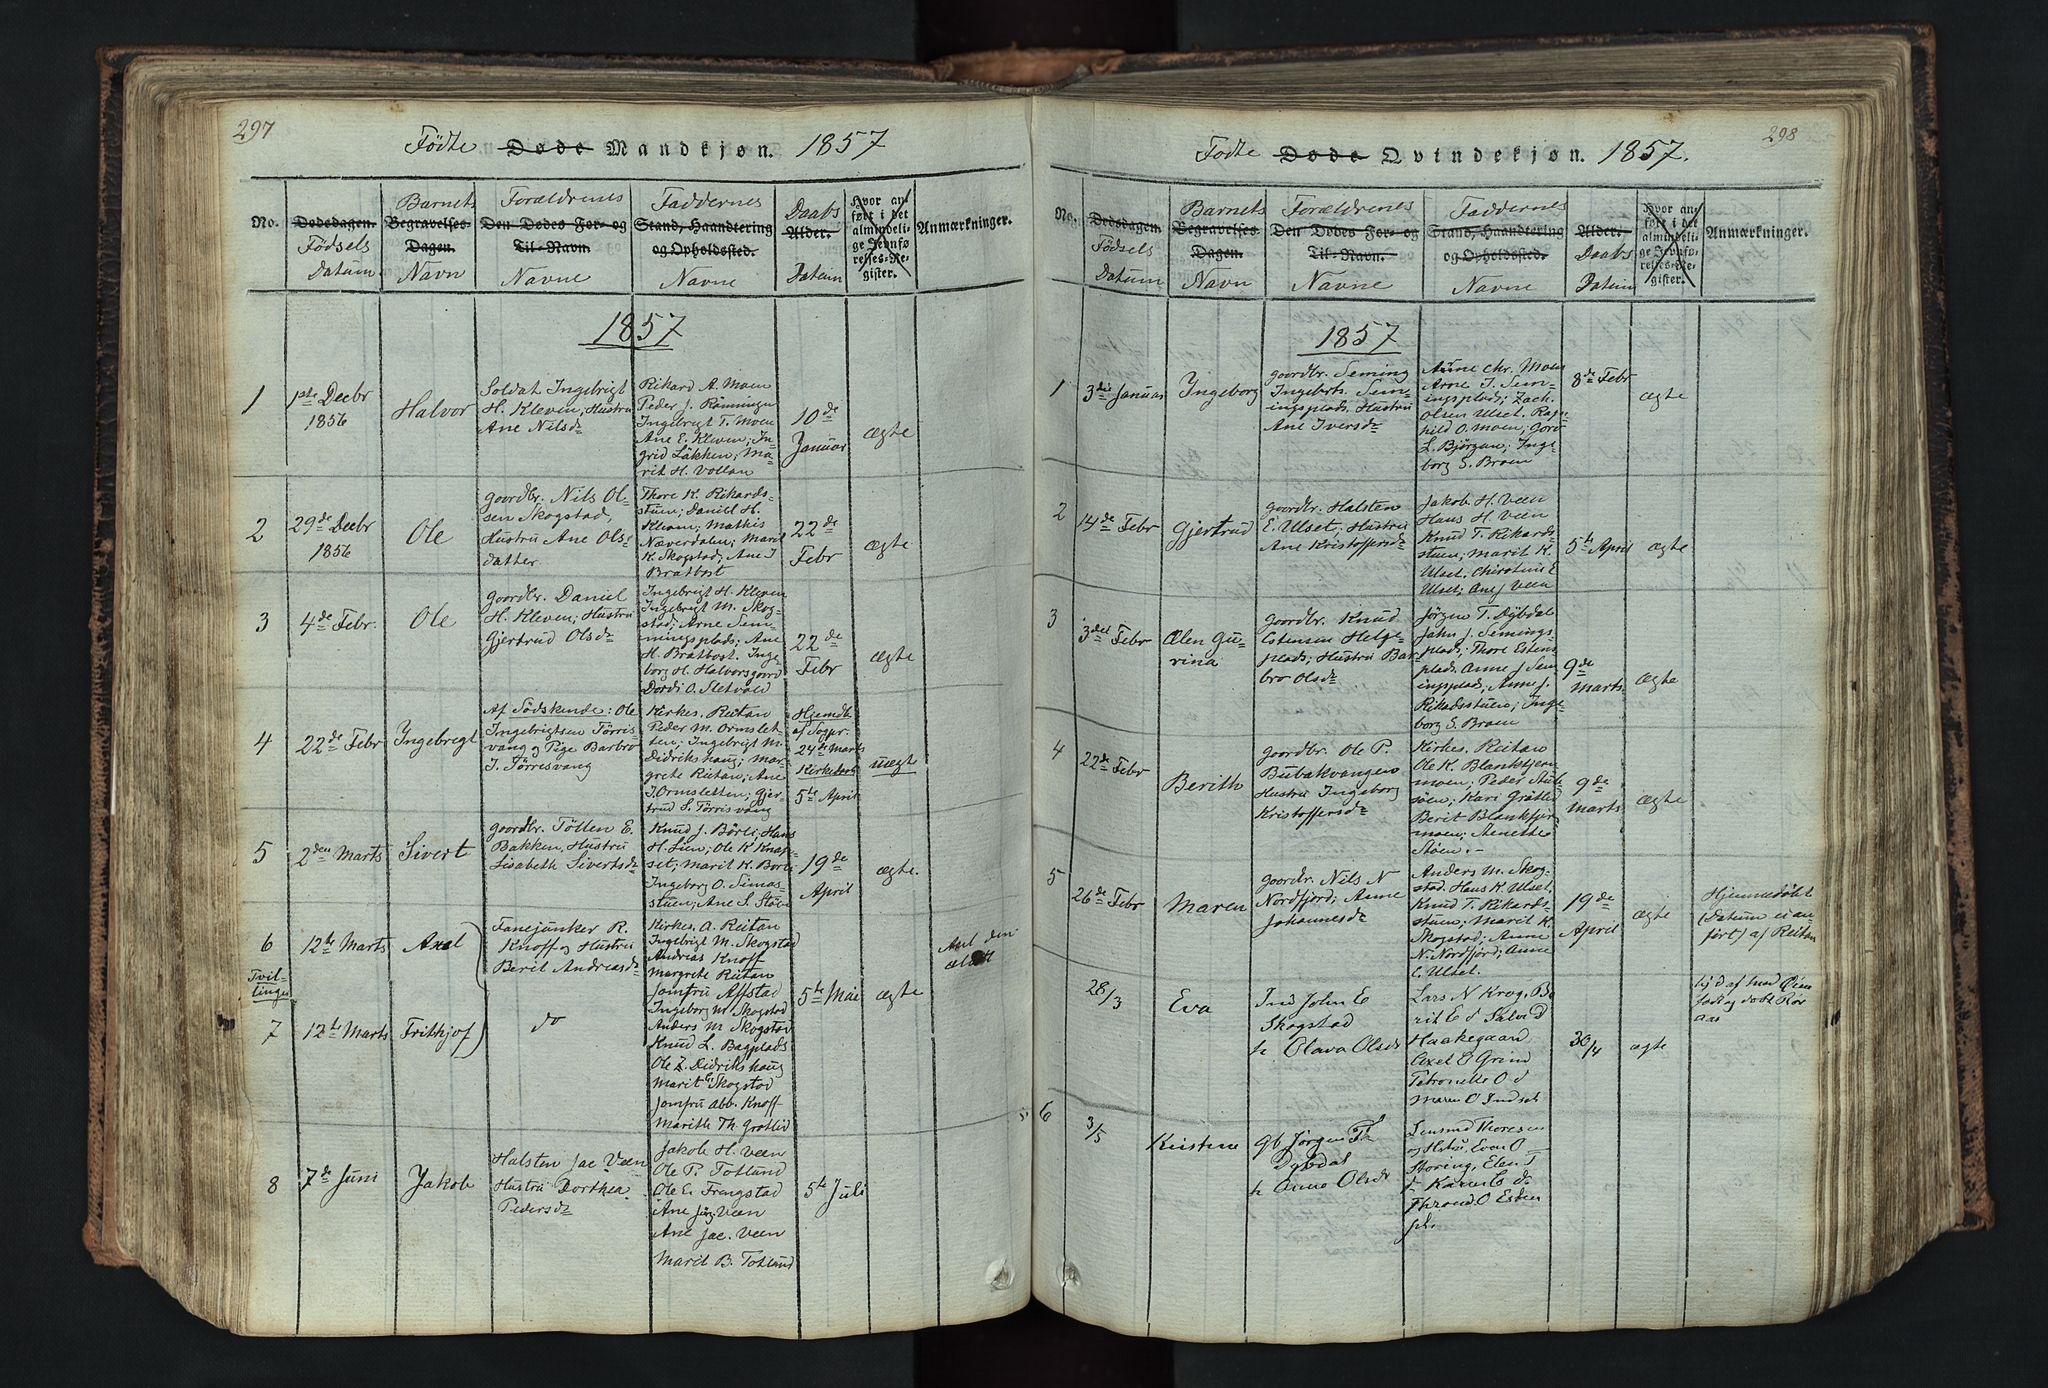 297
Fødte Døde Mandkjøn. 1857
No.
Dødsdagen.
Fødsels
Datum
Barnets
Begravelses-
Dagen.
Navn
Forældrenes
Den Dødes For- og
Til-Navn.
Navne
Faddernes
Stand, Haandtering
og Opholdssted.
Navne
Daabs
Alder.
Datum
Hvor an-
ført i det
almindeli-
ge Jevnfø-
relses-Re-
gister.
Anmærkninger.
1857
1
1ste Decbr
1856
Halvor
Soldat Ingebrigt
H. Kleven; Hustru
Ane Nilsdr
Rikard A. Moen
Peder J. Rönningen
Ingebrigt T. Moen
Ane E. Kleven; In-
grid Løkken; Ma-
rit H. Vollan
10de
Januar
ægte
2
29de Decbr
1856
Ole
Goordbr. Nils Ol-
sen Skogstad,
Hustru Ane Ols-
datter
Thore K. Rikards-
stuen; Daniel H.
Kleven; Mathis
Næverdalen; Marit
K. Skogstad; Ane J
Bratbost
22de
Febr
ægte
3
4de Febr.
Ole
Goordbr. Daniel
H. Kleven; Hustru
Gjertrud Olsdr
Ingebrigt H. Kleven
Ingebrigt M. Skog-
stad; Arne Sem-
mingsplads; Ane
H. Bratbost. Inge-
borg H. Halvorsgoord
Dordi O. Sletvold
22de
Febr
ægte
4
22de Febr
Ingebrigt
Af Södskende: Ole
Ingebrigtsen Törris-
vang og Pige Barbro
I. Törrisvang
Kirkes. Reitan
Peder M. Ormslet-
ten; Ingebrigt M.
Didrikshaug; Mar-
grete Reitan; Ane
I. Ormsletten; Gjer-
trud S. Törrisvang
Hjemdbt
af Sogpr.
24de Marts
Kirkedaab
5te April
uægt
5
2den Marts
Sivert
Goordbr. Töllen E.
Bakken, Hustru
Lisabeth Sivertsdr
Knud J. Börli; Hans
H. Lien; Ole K. Knap-
set; Marit K. Borli
Ingeborg O. Simas-
stuen; Ane S. Stöen
19de
April
ægte.
6
12te Marts
Axel
Fanejunker R.
Knoff og Hustru
Berit Andreasdr
Kirkes. A. Reitan
Ingebrigt M. Skogstad
Andreas Knoff
Margrete Reitan
Jomfru Affstad
Ingeborg M. Skogstad
Axel den
ældst
Tvil-
linger
5te Mai
ægte
7
12te Marts
Frithjof
do
Anders M Skogstad
Knud L. Bagplads
Ole Z. Didrikshaug
Marit E. Skogstad
Jomfru Abb. Knoff
Marith Th. Grøtlid
8
7de Juni
Jakob
Halsten Jac Veen
Hustru Dorthea
Pedersdr
Jakob H. Veen
Ole P. Totlund
Ole E. Frengstad
Ane Jörg. Veen
Ane Jac. Veen
Marit B. Totlund
5te Juli
298
Fødte Døde Qvindekjøn. 1857.
No.
Dødsdagen.
Fødsels
Datum
Barnets
Begravelses-
Dagen.
Navn
Forældrenes
Den Dødes For- og
Til-Navn.
Navne
Faddernes
Stand, Haandtering
og Opholdssted.
Navne
Alder.
Daabs
Datum
Hvor an-
ført i det
almindeli-
ge Jevnfø-
relses-Re-
gister.
Anmærkninger.
1857
1
3die Januar
Ingeborg
Goordbr. Seming
Ingebrts. Sem-
ingsplads, Hustru
Ane Iversdr
Anne Chr. Moen
Arne I. Sem-
ingsplads; Zach.
Olsen Ulset. Rag-
hild O. Moen; Goro
L. Björgan; Inge-
borg S. Broen
8de Febr
ægte
2
14de Febr
Gjertrud
Goordbr. Halsten
E. Ulset; Hustru
Ane Kristoffersdr
Jakob H. Veen
Hans H. Veen
Knud T. Rikards-
stuen; Marit K.
Ulset. Christine E
Ulset; Ane J Veen
5te April
ægte
3
3die Febr
Elen Gu-
rina
Goordbr. Knud
Estensen Helge-
plads; Hustru Bar-
bro Olsdr
Jørgen T. Dybdal
John J. Semings-
plads; Thore Estens
plads. Anne J Sem
ingsplads; Anne J.
Rikadsstuen; Inge-
borg S. Broen
9de
Marts.
ægte
4
22de Febr
Berith
Goordbr. Ole P.
Bubakvangen
Hustru Ingeborg
Kristoffersdr
Kirkes. Reitan
Ole K. Blankkjern
moen; Peder Aule
söen; Kari Grötlid
Berit Blankkjer-
moen; Anette
Stöen.
9de
Marts
ægte
5
26de Febr
Maren
Goordbr. Nils N
Nordfjord; Anne
Johannesdr
Anders M. Skog-
stad. Hans K. Ulset.
Knud T. Rikards-
stuen; Marit K.
Skogstad; Anne
N. Nordfjord; Anne
E. Ulset.
19de
April
ægte
Hjemmedöbt
(Datum ei an-
fört) af Reitan
28/3
Eva
Ind John E
Skogstad
h Olava Olsdr
Lars N Krog, Be
rit E d
Haakegaan
Axel E Grind
Petronelle O d
Maren O Indset
30/4
ægte
6
3/5
Kristine
gb Jørgen Th
Dybdal
h Anna Olsdr
Thoresen
og Hstru, Even O
Storing, Elen J
d, Karen E d
Thrond O Esten
pl.